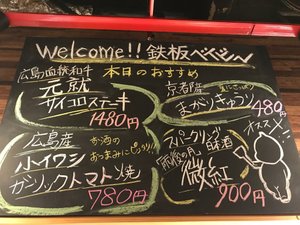 Welcome!!鉄板ベイベ〜
本日のおすすめ
広島血統和牛
元就
サイコロステーキ
1480円
京都産
まがりきゅうり
480円
広島産
お酒の
おつまみにピッタリ!!
小イワシ
ガーリックトマト焼
780円
オススメ
スパークリング日本酒
微紅
900円